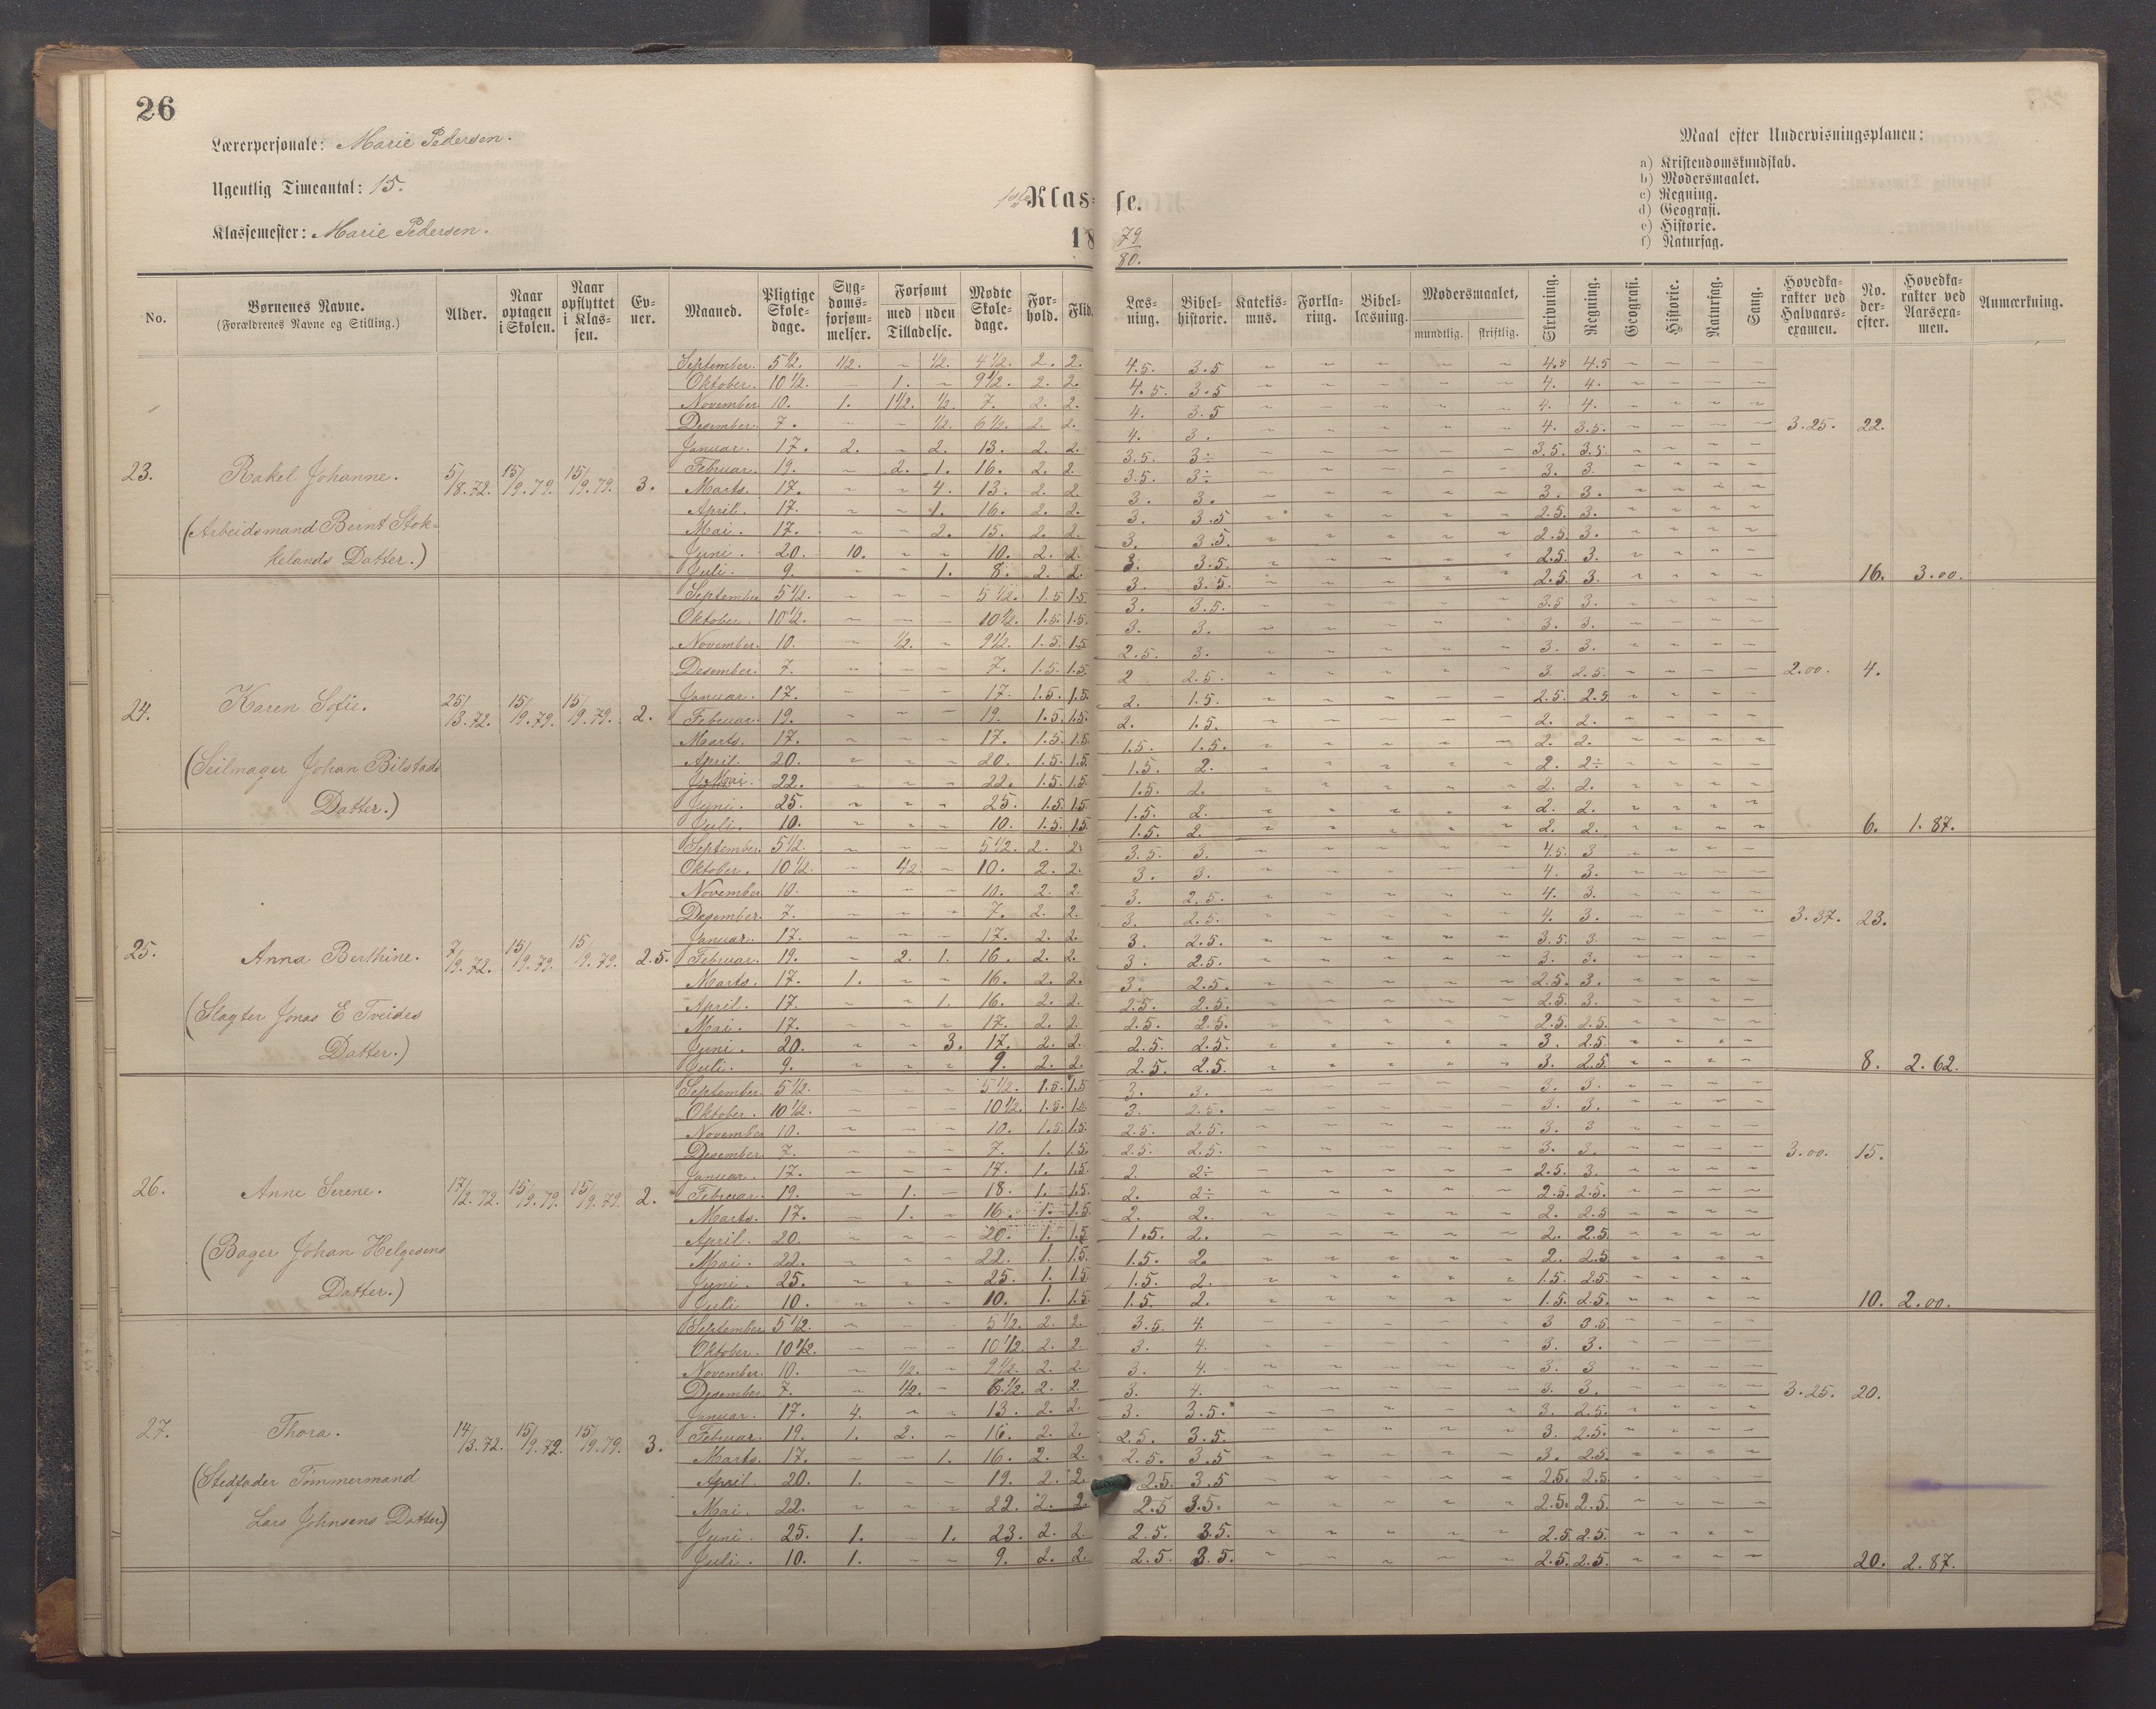 26
Lærerpersonale: Marie Pedersen.
Ugentlig Timeantal: 15.
Klassemester: Marie Pedersen.
1ste Klasse.
1879/80.
Maal efter Undervisningsplanen:
a) Kristendomskundskab.
b) Modersmaalet.
c) Regning.
d) Geografi.
e) Historie.
f) Naturfag.
No. | Børnenes Navne. (Forældrenes Navne og Stilling.) | Alder. | Naar optagen i Skolen. | Naar opflyttet i Klassen. | Evner. | Maaned. | Pligtige Skoledage. | Sygdomsforsømmelser. | Forsømt med / uden Tilladelse. | Mødte Skoledage. | Forhold. | Flid. | Læsning. | Bibelhistorie. | Katekismus. | Forklaring. | Bibellæsning. | Modersmaalet, mundtlig. skriftlig. | Skrivning. | Regning. | Geografi. | Historie. | Naturfag. | Sang. | Hovedkarakter ved Halvaarsexamen. | No. derefter. | Hovedkarakter ved Aarsexamen. | Anmærkning.
23. Rakel Johanne. 5/8.72. 15/9.79. 15/9.79. 3.
(Arbeidsmand Bernt Stokkelands Datter.)
September. 5 1/2. 1/2. ~ 1/2. 4 1/2. 2. 2. 4.5. 3.5 ~ ~ ~ ~ ~ 4.5 4.5 ~ ~ ~ ~
Oktober. 10 1/2. ~ 1. ~ 9 1/2. 2. 2. 4.5. 3.5 ~ ~ ~ ~ ~ 4. 4. ~ ~ ~ ~
November. 10. 1. 1 1/2. 1/2. 7. 2. 2. 4. 3.5 ~ ~ ~ ~ ~ 4. 4. ~ ~ ~ ~
Desember. 7. ~ ~ 1/2. 6 1/2. 2. 2. 4. 3. ~ ~ ~ ~ ~ 4. 3.5. ~ ~ ~ ~ 3.25. 22.
Januar. 17. 2. ~ 2. 13. 2. 2. 3.5. 3÷ ~ ~ ~ ~ ~ 3.5. 3.5. ~ ~ ~ ~
Februar. 19. ~ 2. 1. 16. 2. 2. 3.5. 3÷ ~ ~ ~ ~ ~ 3. 3. ~ ~ ~ ~
Marts. 17. ~ ~ 4. 13. 2. 2. 3. 3. ~ ~ ~ ~ ~ 3. 3. ~ ~ ~ ~
April. 17. ~ ~ 1. 16. 2. 2. 3. 3.5 ~ ~ ~ ~ ~ 2.5. 3. ~ ~ ~ ~
Mai. 17. ~ ~ 2. 15. 2. 2. 3. 3.5. ~ ~ ~ ~ ~ 2.5. 3. ~ ~ ~ ~
Juni. 20. 10. ~ ~ 10. 2. 2. 3. 3.5. ~ ~ ~ ~ ~ 2.5 3. ~ ~ ~ ~
Juli. 9. ~ ~ 1. 8. 2. 2. 3. 3.5. ~ ~ ~ ~ ~ 2.5. 3. ~ ~ ~ ~ 16. 3.00.
24. Karen Sofie. 25/3.72. 15/9.79. 15/9.79. 2.
(Seilmager Johan Bilstads Datter.)
September 5 1/2. ~ ~ ~ 5 1/2. 1.5 1.5 3. 3.5. ~ ~ ~ ~ ~ 3.5 3. ~ ~ ~ ~
Oktober. 10 1/2. ~ ~ ~ 10 1/2. 1.5. 1.5. 3. 3. ~ ~ ~ ~ ~ 3. 3. ~ ~ ~ ~
November. 10. ~ 1/2. ~ 9 1/2. 1.5. 1.5 2.5. 3. ~ ~ ~ ~ ~ 3. 3. ~ ~ ~ ~
Desember. 7. ~ ~ ~ 7. 1.5. 1.5 2 2.5. ~ ~ ~ ~ ~ 3. 2.5. ~ ~ ~ ~ 2.00. 4.
Januar. 17. ~ ~ ~ 17. 1.5. 1.5. 2. 1.5. ~ ~ ~ ~ ~ 2.5. 2.5 ~ ~ ~ ~
Februar. 19. ~ ~ ~ 19. 1.5. 1.5. 2. 1.5. ~ ~ ~ ~ ~ 2. 2. ~ ~ ~ ~
Marts. 17. ~ ~ ~ 17. 1.5. 1.5. 1.5. 1.5. ~ ~ ~ ~ ~ 2. 2. ~ ~ ~ ~
April. 20. ~ ~ ~ 20. 1.5. 1.5 1.5. 2. ~ ~ ~ ~ ~ 2. 2÷ ~ ~ ~ ~
Mai. 22. ~ ~ ~ 22. 1.5. 1.5 1.5. 2. ~ ~ ~ ~ ~ 2. 2. ~ ~ ~ ~
Juni. 25. ~ ~ ~ 25. 1.5. 1.5 1.5. 2. ~ ~ ~ ~ ~ 2. 2. ~ ~ ~ ~
Juli. 10. ~ ~ ~ 10. 1.5. 1.5 1.5. 2. ~ ~ ~ ~ ~ 2. 2. ~ ~ ~ ~ 6. 1.87.
25. Anna Berthine. 7/9.72. 15/9.79. 15/9.79. 2.5.
(Slagter Jonas E Tveides Datter.)
September 5 1/2. ~ ~ ~ 5 1/2. 2. 2. 3.5. 3. ~ ~ ~ ~ ~ 4.5. 3 ~ ~ ~ ~
Oktober. 10 1/2. ~ 1/2 ~ 10. 2. 2. 3. 3. ~ ~ ~ ~ ~ 4. 3. ~ ~ ~ ~
November 10. ~ ~ ~ 10. 2. 2. 3. 2.5. ~ ~ ~ ~ ~ 4. 3. ~ ~ ~ ~
Desember. 7. ~ ~ ~ 7. 2. 2. 3. 2.5. ~ ~ ~ ~ ~ 4. 3. ~ ~ ~ ~ 3.37. 23.
Januar. 17. ~ ~ ~ 17. 2. 2. 3. 2.5. ~ ~ ~ ~ ~ 3.5. 3. ~ ~ ~ ~
Februar. 19. ~ 2. 1. 16. 2. 2. 3. 2.5. ~ ~ ~ ~ ~ 3. 3. ~ ~ ~ ~
Marts. 17. 1. ~ ~ 16. 2. 2. 3. 2.5. ~ ~ ~ ~ ~ 2.5. 3. ~ ~ ~ ~
April. 17. ~ ~ 1. 16. 2. 2. 2.5. 2.5. ~ ~ ~ ~ ~ 2.5. 3. ~ ~ ~ ~
Mai. 17. ~ ~ ~ 17. 2. 2. 2.5. 2.5. ~ ~ ~ ~ ~ 2.5. 2.5. ~ ~ ~ ~
Juni. 20. ~ ~ 3. 17. 2. 2. 2.5. 2.5. ~ ~ ~ ~ ~ 3. 2.5 ~ ~ ~ ~
Juli. 9. ~ ~ ~ 9. 2. 2. 2.5. 2.5. ~ ~ ~ ~ ~ 3. 2.5. ~ ~ ~ ~ 8. 2.62.
26. Anne Serene. 17/2.72. 15/9.79. 15/9.79. 2.
(Bager Johan Helgesens Datter.)
September 5 1/2. ~ ~ ~ 5 1/2. 1.5. 1.5 3. 3. ~ ~ ~ ~ ~ 3. 3. ~ ~ ~ ~
Oktober. 10 1/2. ~ ~ ~ 10 1/2. 1.5. 1.5. 3. 2.5. ~ ~ ~ ~ ~ 3. 3. ~ ~ ~ ~
November 10. ~ ~ ~ 10. 1.5. 1.5. 2.5. 2.5. ~ ~ ~ ~ ~ 3. 3 ~ ~ ~ ~
Desember. 7. ~ ~ ~ 7. 1. 1.5. 2.5. 2.5. ~ ~ ~ ~ ~ 3. 3. ~ ~ ~ ~ 3.00. 15.
Januar. 17. ~ ~ ~ 17. 1. 1.5. 2. 2÷ ~ ~ ~ ~ ~ 2.5. 3. ~ ~ ~ ~
Februar. 19. ~ 1. ~ 18. 1. 1.5. 2. 2÷ ~ ~ ~ ~ ~ 2.5. 2.5. ~ ~ ~ ~
Marts. 17. ~ 1. ~ 16. 1. 1.5. 2. 2. ~ ~ ~ ~ ~ 2. 2.5 ~ ~ ~ ~
April. 20. ~ ~ ~ 20. 1. 1.5 1.5. 2. ~ ~ ~ ~ ~ 2. 2.5 ~ ~ ~ ~
Mai. 22. ~ ~ ~ 22. 1. 1.5. 1.5. 2. ~ ~ ~ ~ ~ 2. 2.5 ~ ~ ~ ~
Juni. 25. ~ ~ ~ 25. 1. 1.5 1.5. 2. ~ ~ ~ ~ ~ 1.5. 2.5. ~ ~ ~ ~
Juli 10. ~ ~ ~ 10. 1. 1.5. 1.5. 2. ~ ~ ~ ~ ~ 1.5. 2.5. ~ ~ ~ ~ 10. 2.00.
27. Thora. 14/3.72. 15/9.72. 15/9.79. 3.
(Stedfader Tømmermand Lars Johnsens Datter)
September 5 1/2. ~ ~ ~ 5 1/2. 2. 2. 3.5. 4. ~ ~ ~ ~ ~ 3 3.5. ~ ~ ~ ~
Oktober. 10 1/2. ~ ~ ~ 10 1/2. 2. 2. 3. 4. ~ ~ ~ ~ ~ 3. 3. ~ ~ ~ ~
November. 10. ~ 1/2. ~ 9 1/2. 2. 2. 3. 4. ~ ~ ~ ~ ~ 3. 3 ~ ~ ~ ~
Desember 7. ~ 1/2. ~ 6 1/2. 2. 2. 3. 4. ~ ~ ~ ~ ~ 3. 3. ~ ~ ~ ~ 3.25. 20.
Januar. 17. 4. ~ ~ 13. 2. 2. 3. 3.5. ~ ~ ~ ~ ~ 3. 2.5. ~ ~ ~ ~
Februar. 19. 1. 2. ~ 16. 2. 2. 2.5. 3.5. ~ ~ ~ ~ ~ 3. 2.5. ~ ~ ~ ~
Marts. 17. ~ ~ 1. 16. 2. 2. 2.5. 3.5 ~ ~ ~ ~ ~ 3. 2.5 ~ ~ ~ ~
April 20. 1. ~ ~ 19. 2. 2. 2.5. 3.5 ~ ~ ~ ~ ~ 2.5. 2.5. ~ ~ ~ ~
Mai. 22. ~ ~ ~ 22. 2. 2. 2.5 3.5. ~ ~ ~ ~ ~ 2.5. 2.5. ~ ~ ~ ~
Juni. 25. 1. ~ 1. 23. 2. 2. 2.5. 3.5. ~ ~ ~ ~ ~ 2.5 2.5. ~ ~ ~ ~
Juli. 10. 1. ~ ~ 9. 2. 2. 2.5. 3.5. ~ ~ ~ ~ ~ 2.5. 2.5. ~ ~ ~ ~ 20. 2.87.